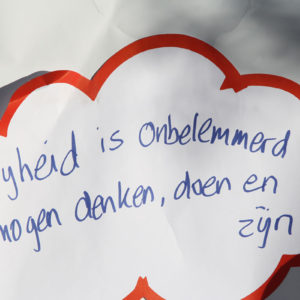 yheid is onbelemmerd
mogen denken, doen en
zijn